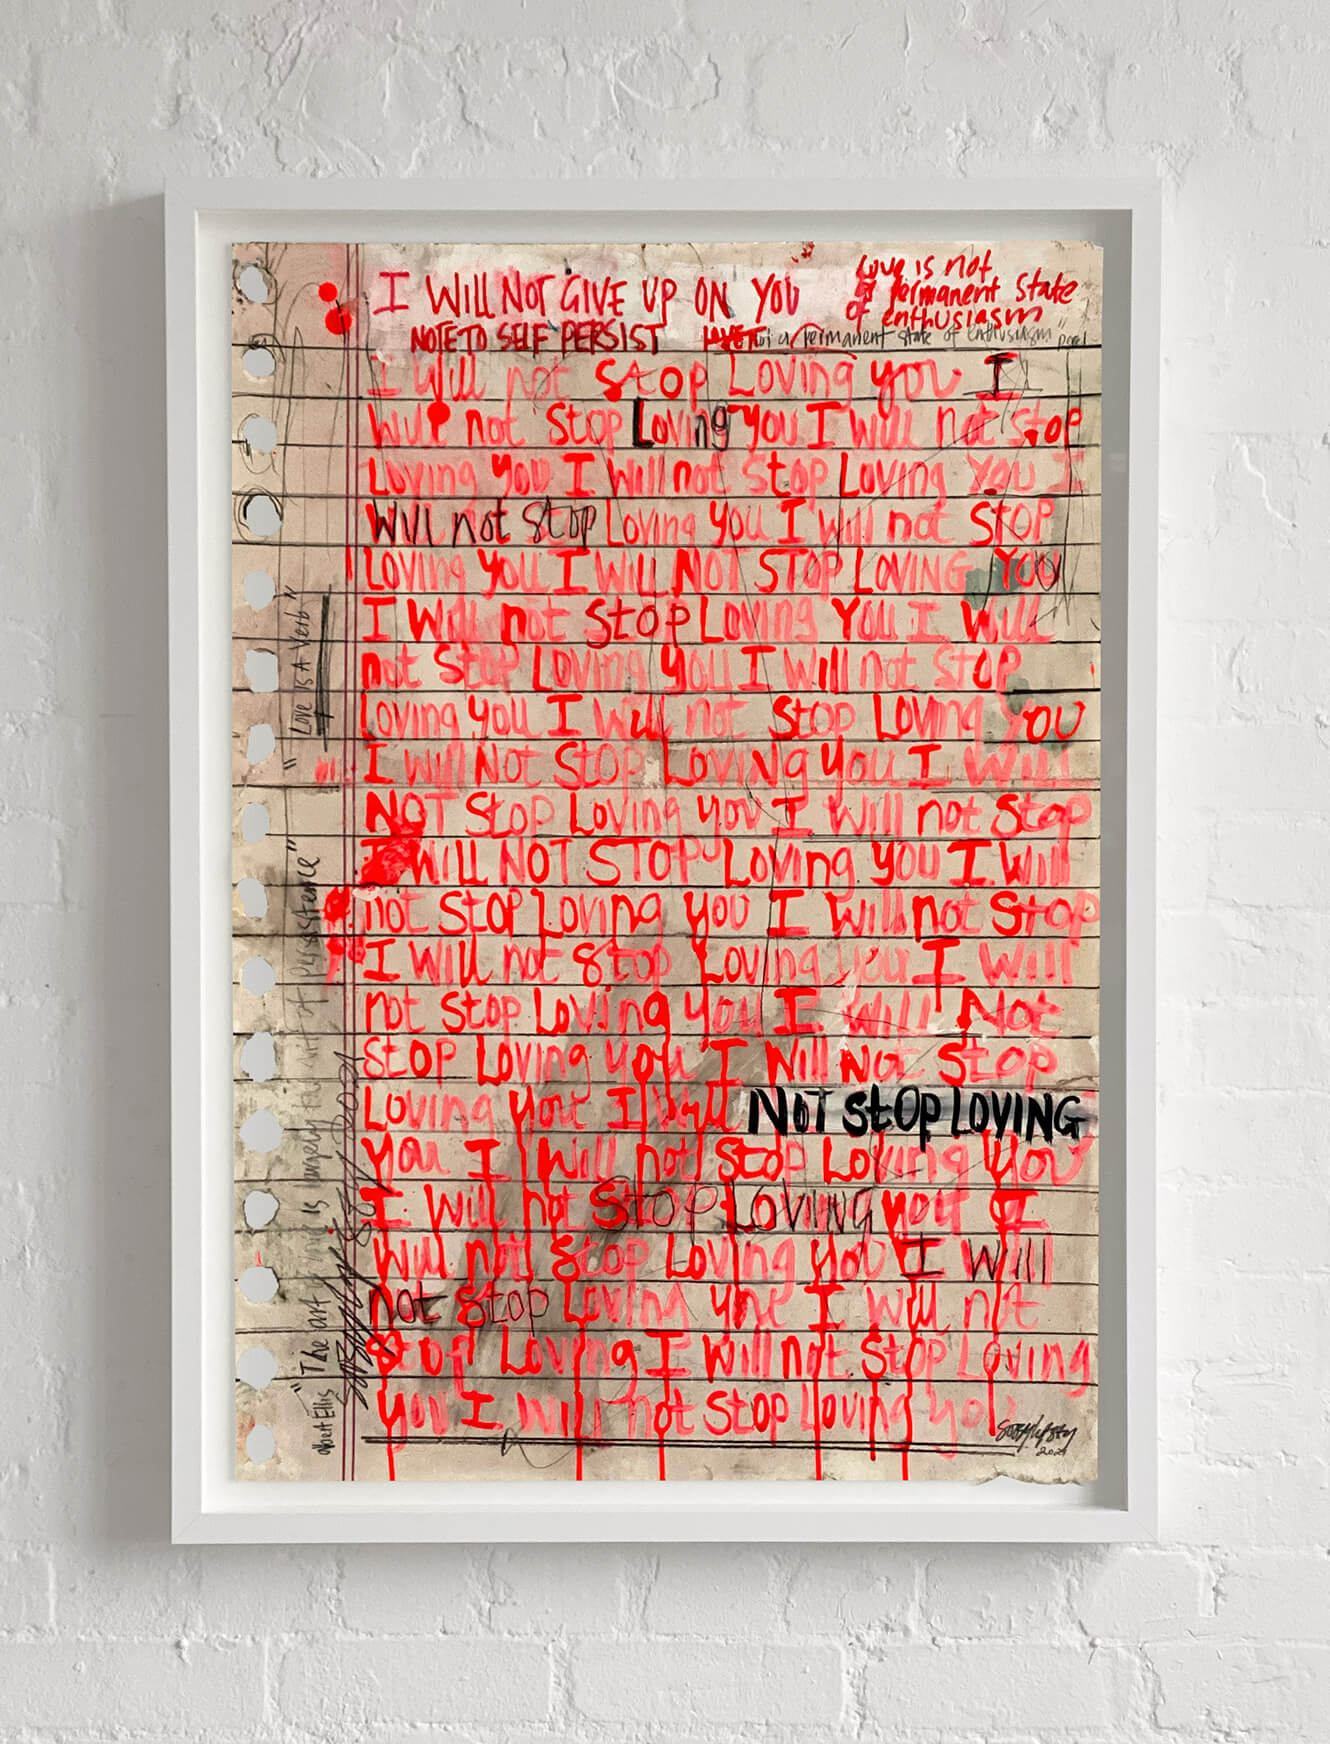 I WILL NOT GIVE UP ON YOU
Love is not
a permanent state
of enthusiasm
NOTE TO SELF PERSIST
LOVE not a permanent state of enthusiasm"
I will not stop Loving you I
will not stop Loving you I will not stop
Loving you I will not stop Loving you I
will not stop Loving you I will not stop
Loving you I WILL NOT STOP LOVING YOU
I will not stop Loving You I will
not stop Loving you I will not stop
Loving you I will not stop Loving you
I will Not stop Loving you I will
NOT stop Loving you I will not stop
I WILL NOT STOP Loving you I will
not stop Loving you I will not stop
I will not stop Loving you I will
not stop Loving you I will Not
stop Loving you I will not stop
Loving you I will NOT stOp LOVING
you I will not stop Loving you
I will not stop LOVING you I
will not stop Loving you I will
not stop Loving you I will not
stop Loving I will not stop Loving
you I will not stop Loving you
"Love Is A Verb"
"The art of love is largely the art of persistence"
albert Ellis